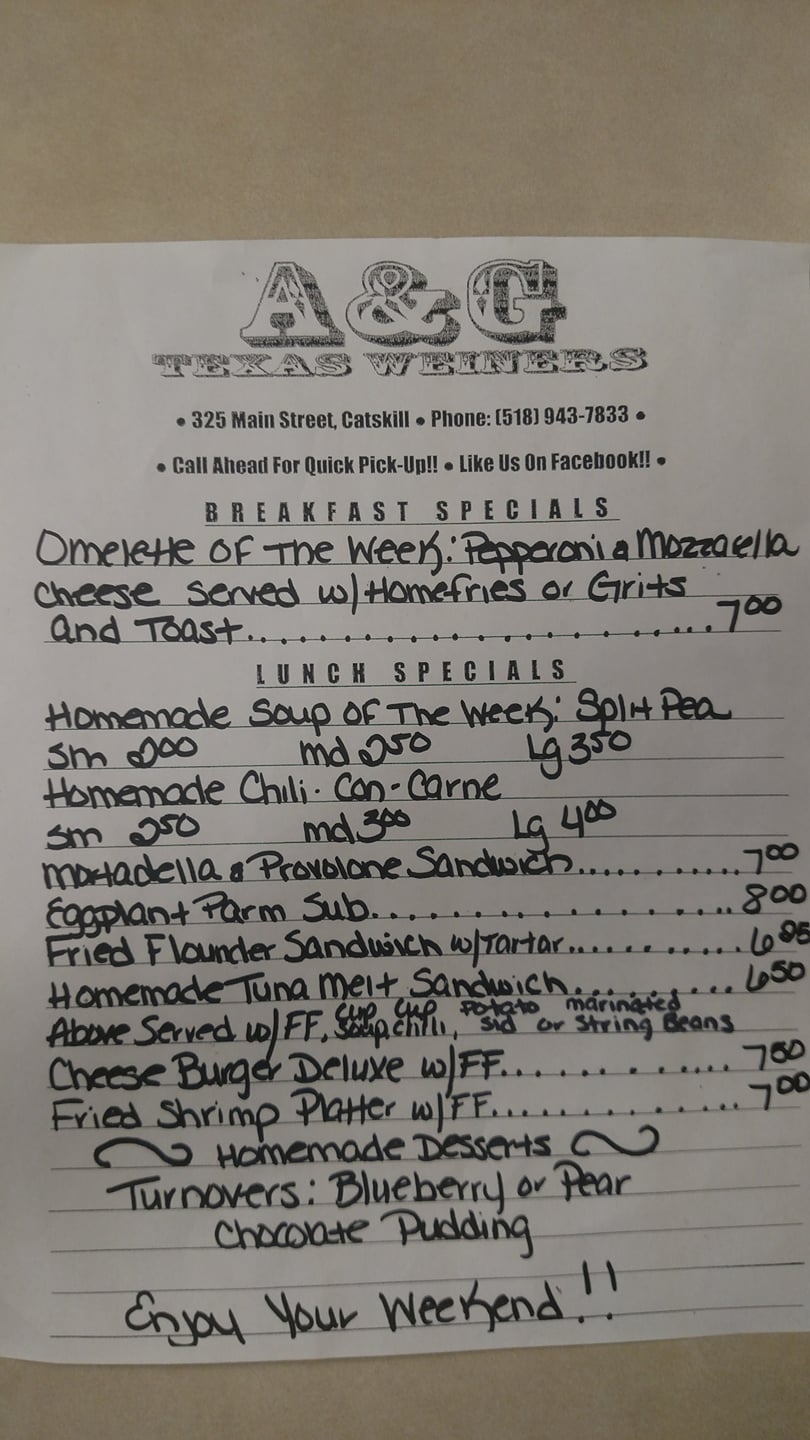 A&G
TEXAS WEINERS
• 325 Main Street, Catskill • Phone: (518) 943-7833 •
• Call Ahead For Quick Pick-Up!! • Like Us On Facebook!! •
BREAKFAST SPECIALS
Omelette Of The Week: Pepperoni & Mozzaella
Cheese Served w/ Homefries or Grits
and Toast........................7.00
LUNCH SPECIALS
Homemade Soup Of The Week: Split Pea
Sm 2.00 md 2.50 Lg 3.50
Homemade Chili-Con-Carne
Sm 2.50 md 3.00 Lg 4.00
Mortadella & Provolone Sandwich............7.00
Eggplant Parm Sub....................8.00
Fried Flounder Sandwich w/Tartar...........6.95
Homemade Tuna Melt Sandwich..........6.50
Above Served w/FF, Cup Soup, Cup Chili, Potato Sld or marinated String Beans
Cheese Burger Deluxe w/FF.............7.50
Fried Shrimp Platter w/FF..............7.00
Homemade Desserts
Turnovers: Blueberry or Pear
Chocolate Pudding
Enjoy Your Weekend!!